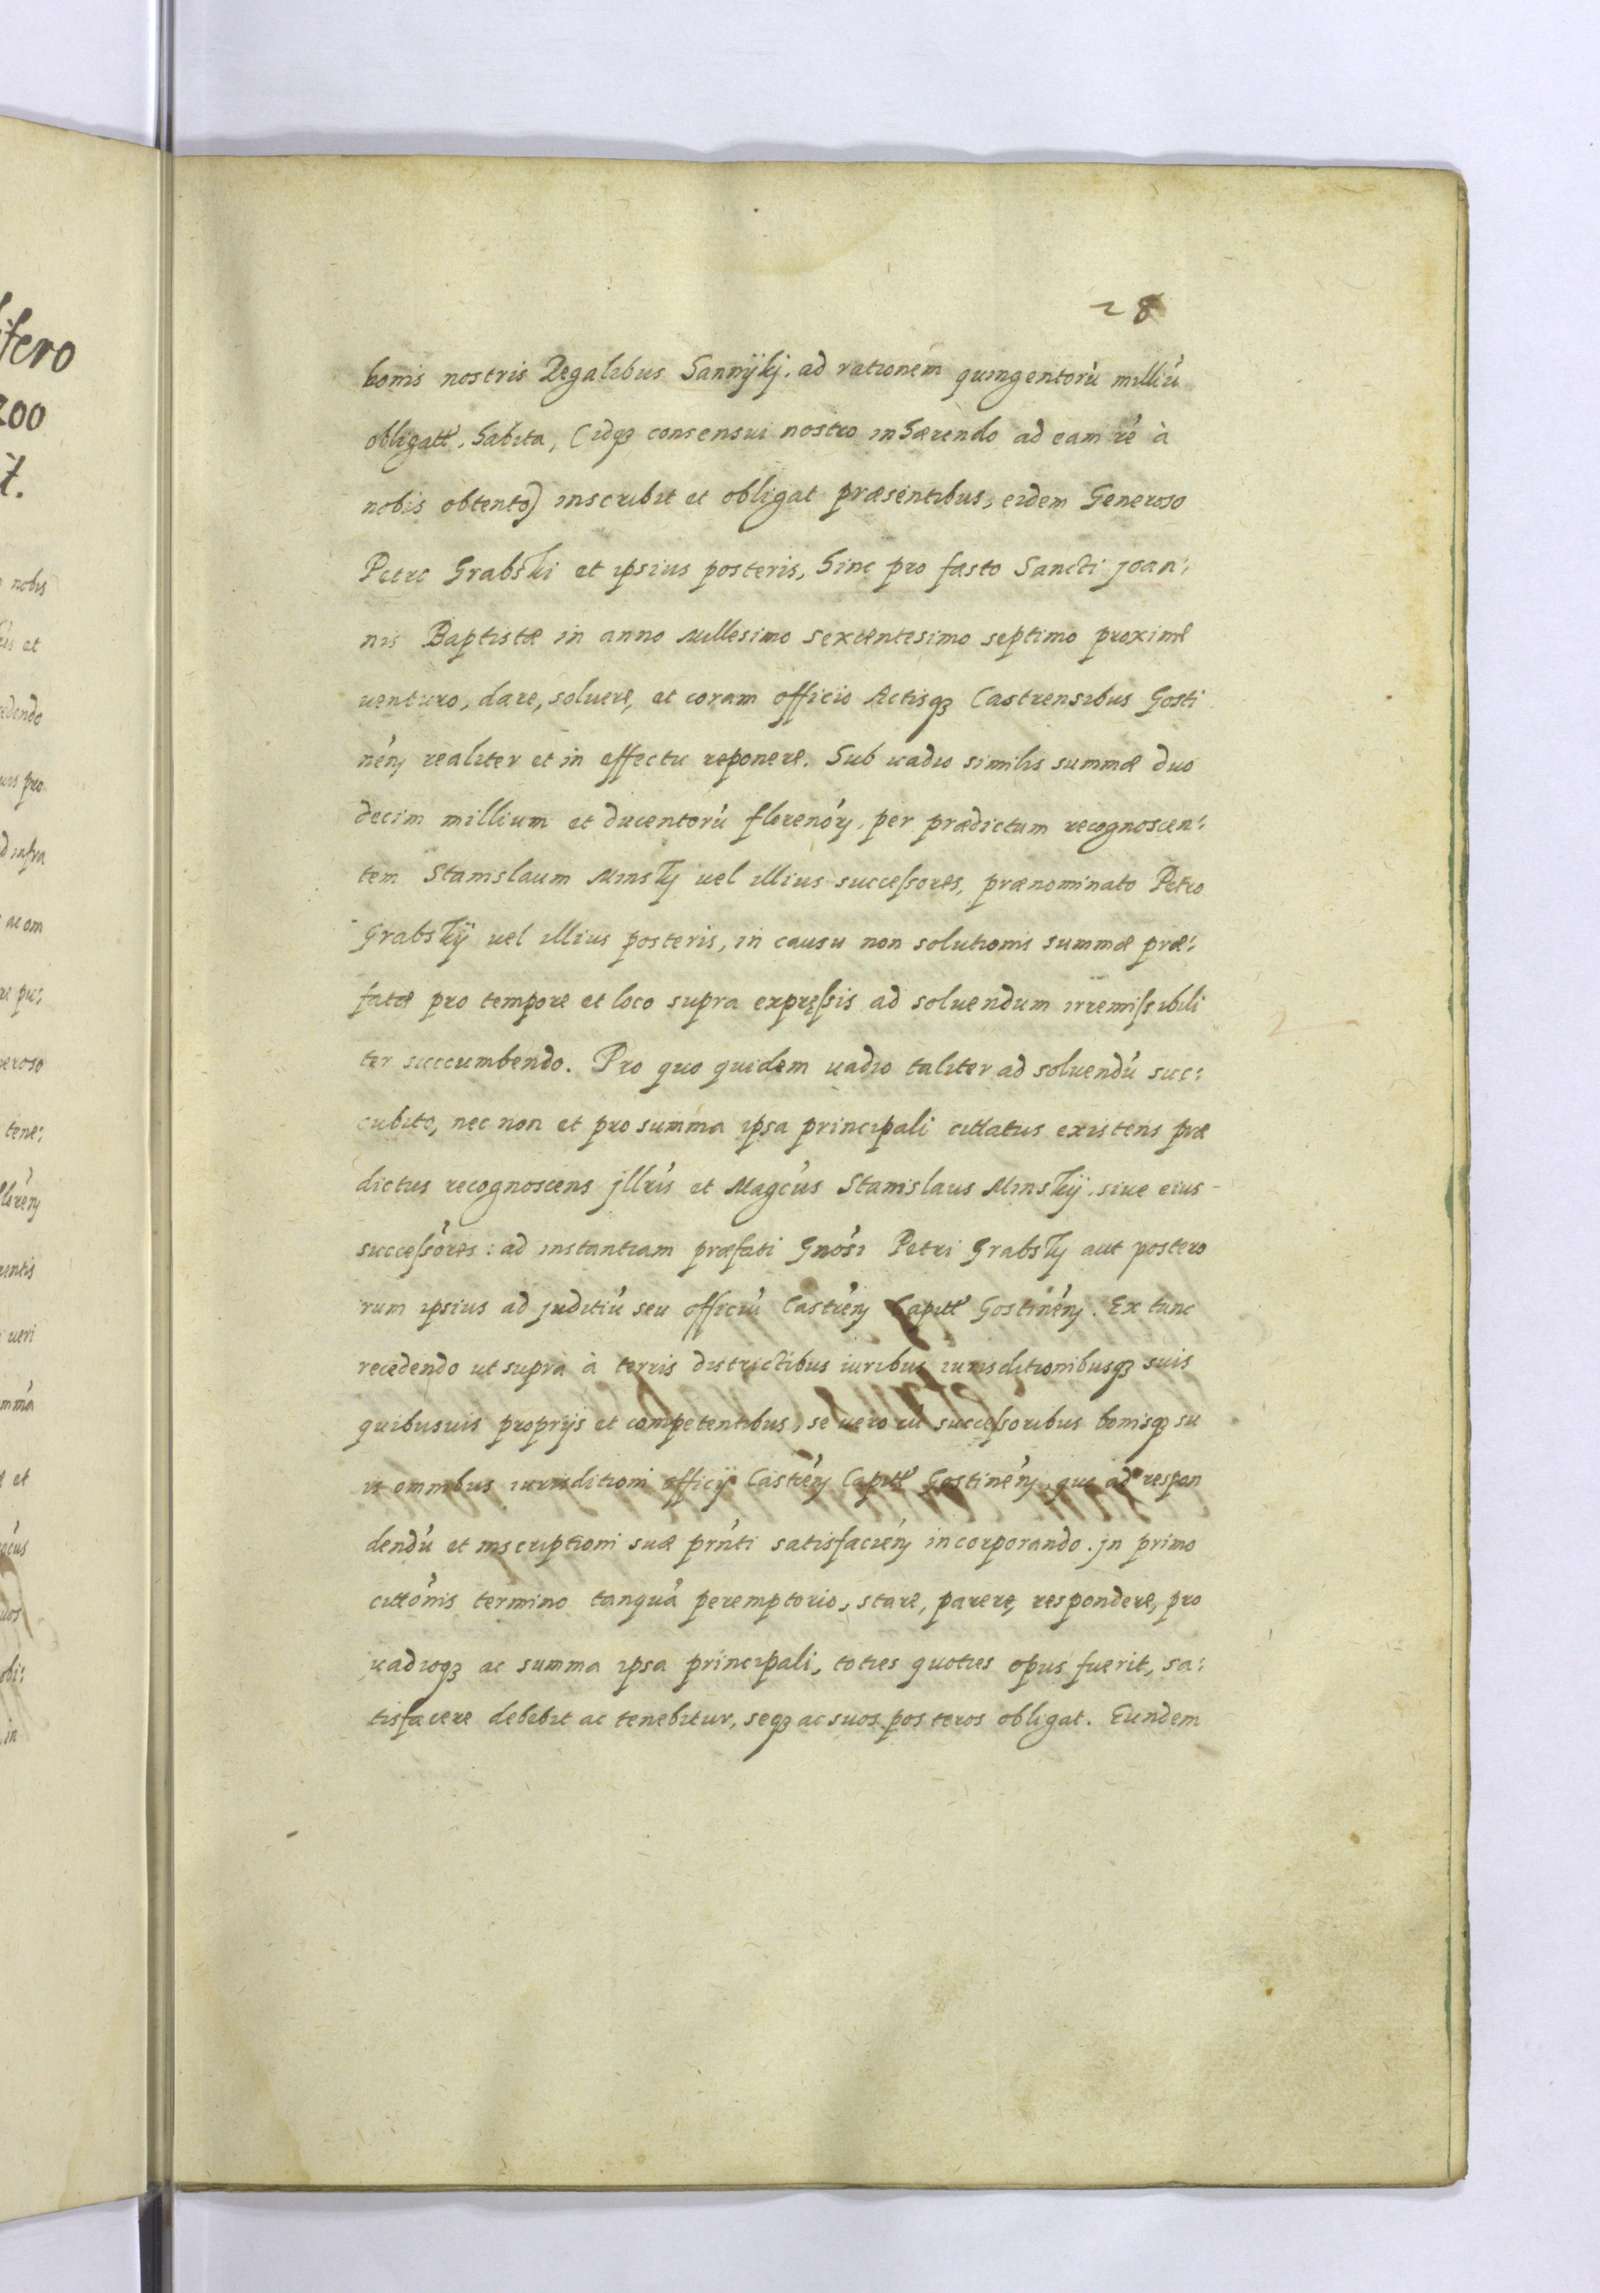 28
bonis nostris Regalibus Sannÿkj. ad rationem quingentorú milliú
obligatt. habita, (idq3 consensui nostro inhærendo ad eam ré à
nobis obtento) inscribit et obligat præsentibus, eidem Generoso
Petro Grabski et ipsius posteris, hinc pro fæsto Sancti Joan:
nis Baptistæ in anno Millesimo sexcentesimo septimo proximè
venturo, dare, soluere, et coram officio Actisq3 Castrensibus Gosti
nén realiter et in effectu reponere. Sub uadio similis summæ duo
decim millium et ducentorú florenór, per prædictum recognoscen:
tem Stanislaum Minskj uel illius successores, prænominato Petro
Grabskij uel illius posteris, in causu non solutionis summæ præ:
fatæ pro tempore et loco supra expressis ad soluendum irremissibili
ter succumbendo. Pro quo quidem uadio taliter ad soluendú suc:
cubito, nec non et pro summa ipsa principali cittatus existens præ
dictus recognoscens jllrís et Magcús Stanislaus Minskij. siue eius
successóres: ad instantiam præfati Gnósi Petri Grabskj aut postero
rum ipsius ad juditiú seu officiú Castrén Capitt Gostinén. Ex tunc
recedendo ut supra à terris districtibus iuribus iurisditionibusq3 suis
quibusuis proprijs et competentibus, se uero cú successoribus bonisq3 su
is omnibus iurisditioni officij Castrén Capitt Gostinén, quo ad respon
dendú et inscriptioni suæ prńti satisfacién incorporando. jn primo
cittónis termino tanquá peremptorio, stare, parere, respondere, pro
uadioq3 ac summa ipsa principali, toties quoties opus fuerit, sa:
tisfacere debebit ac tenebitur, seq3 ac suos posteros obligat. Eundem